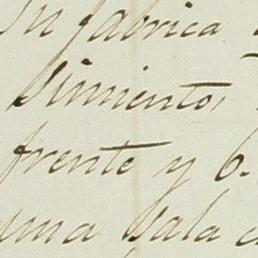 su fabrica
simientos
frente y 6.
una sala